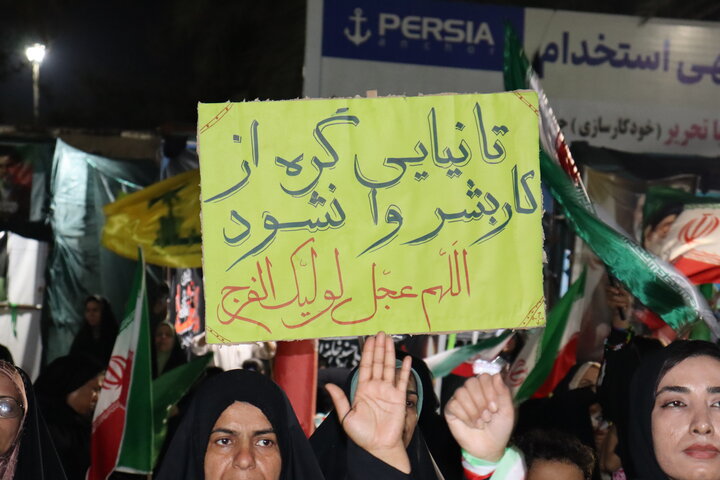 PERSIA
anchor
هی استخدام
تحریر (خودکارسازی)
تا نیایی گره از
کار بشر وا نشود
اللهم عجّل لولیک الفرج